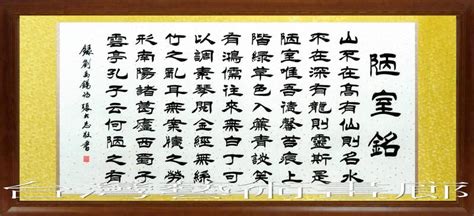 陋室銘
山不在高有仙則名水
不在深有龍則靈斯是
陋室唯吾德馨苔痕上
階綠草色入簾青談笑
有鴻儒往來無白丁可
以調素琴閱金經無絲
竹之亂耳無案牘之勞
形南陽諸葛廬西蜀子
雲亭孔子云何陋之有
錄劉禹錫